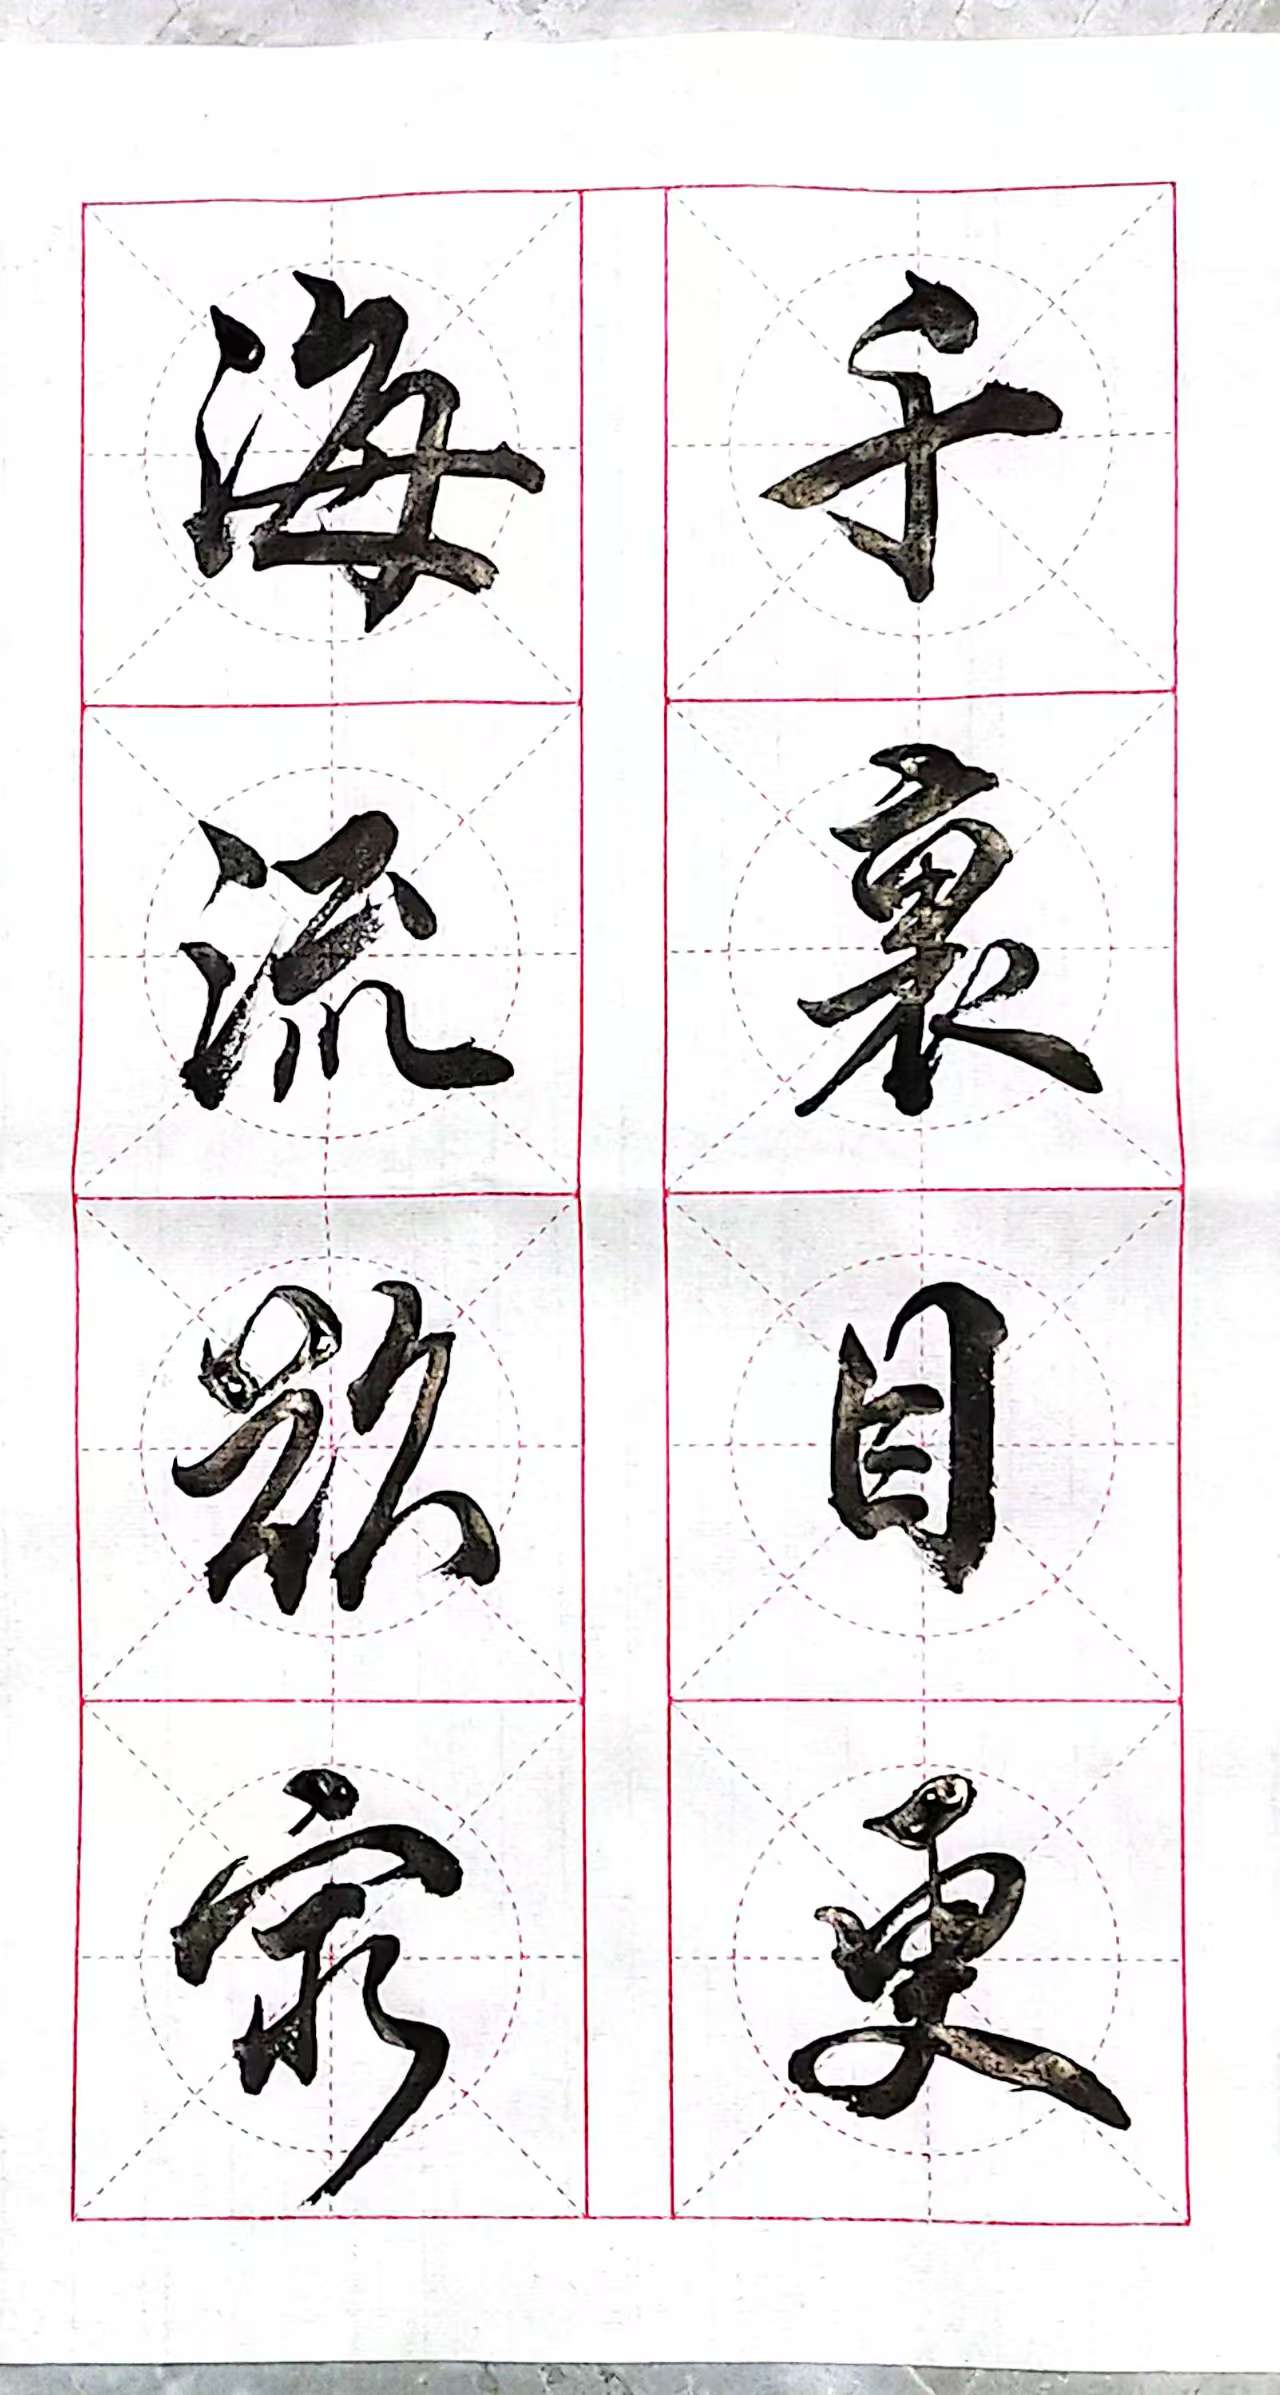 海流欲窮
千裏目更